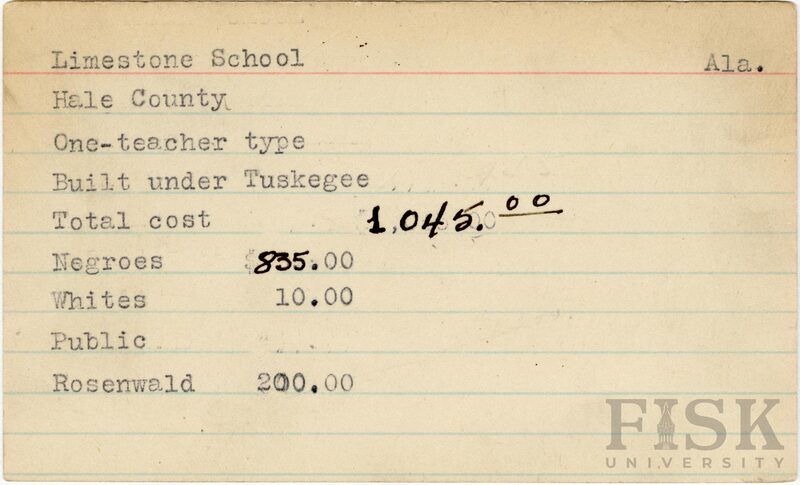 Limestone School Ala.
Hale County
One-teacher type
Built under Tuskegee
Total cost 1,045.00
Negroes 835.00
Whites 10.00
Public
Rosenwald 200.00
FISK
UNIVERSITY